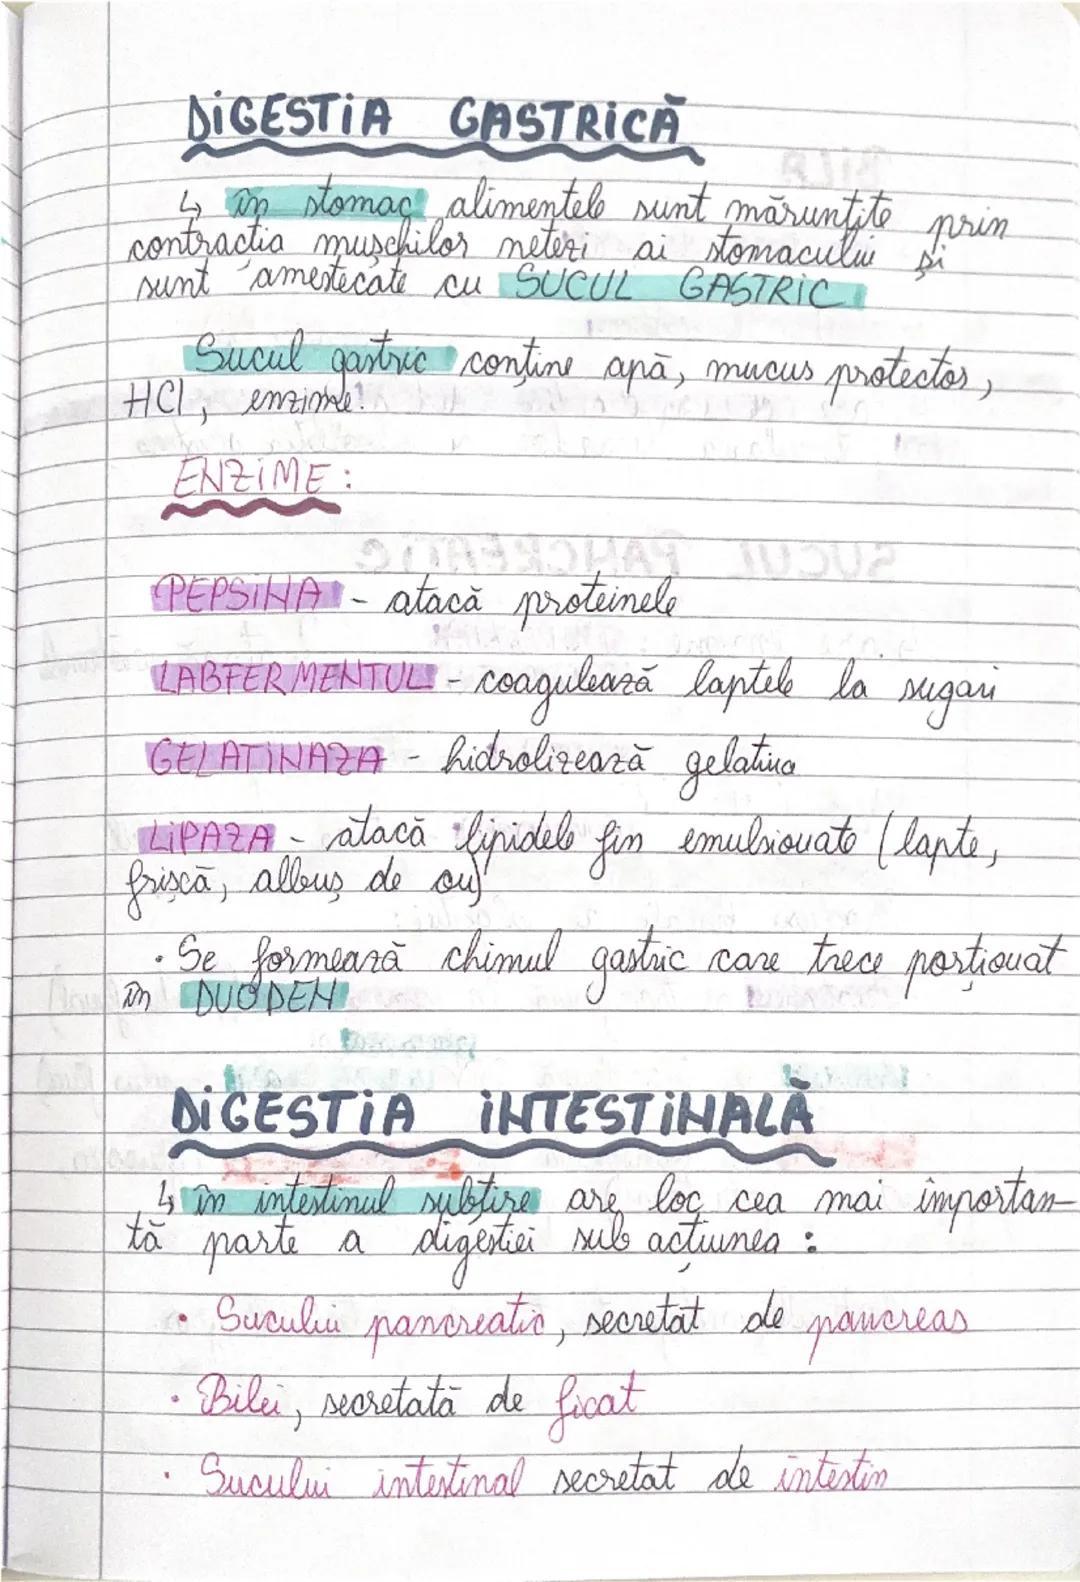 DIGESTIA GASTRICĂ
↳ în stomac alimentele sunt mărunțite prin
contracția mușchilor netezi ai stomacului și
sunt amestecate cu SUCUL GASTRIC
Sucul gastric conține apă, mucus protector,
HCl, enzime!
ENZIME:
PEPSINA - atacă proteinele
LABFERMENTUL - coagulează laptele la sugari
GELATINAZA - hidrolizează gelatina
LIPAZA - atacă lipidele fin emulsionate (lapte,
frișcă, albuș de ou)
· Se formează chimul gastric care trece porționat
în DUODEN
DIGESTIA INTESTINALĂ
↳ în intestinul subțire are loc cea mai importan-
tă parte a digestiei sub acțiunea:
• Sucului pancreatic, secretat de pancreas
• Bilei, secretată de ficat
• Sucului intestinal secretat de intestin